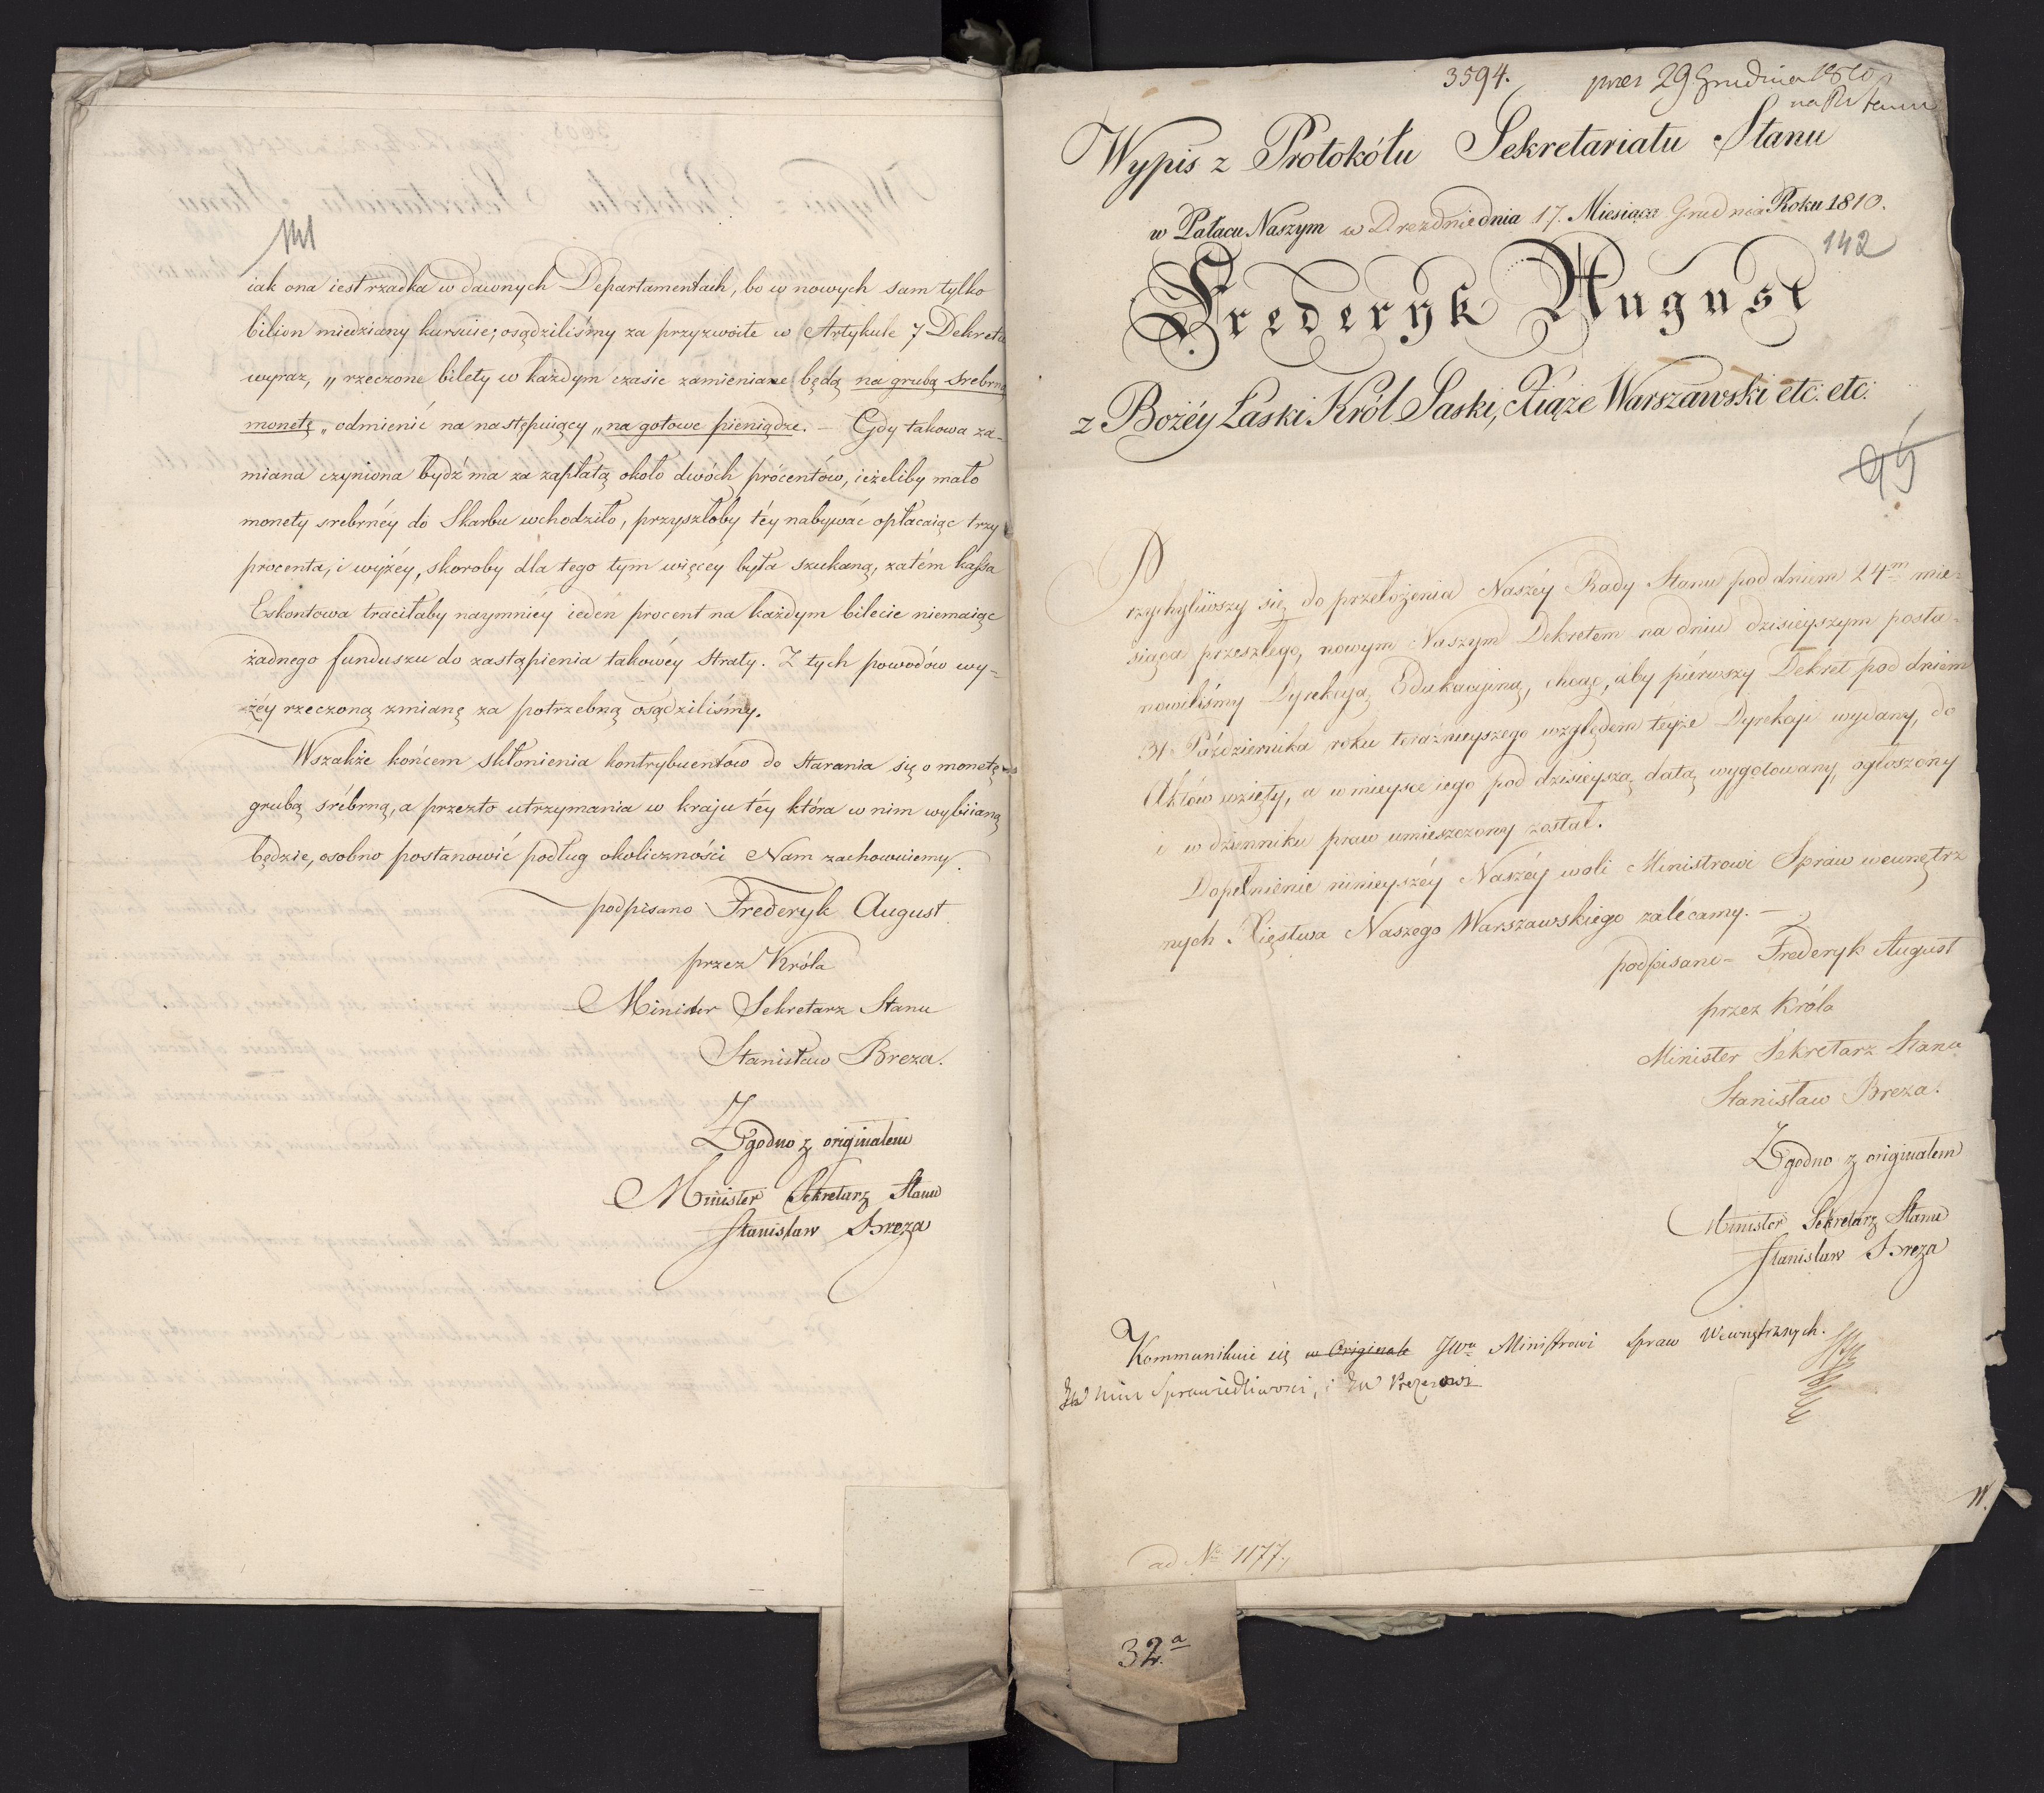 141
iak ona iest rzadka w dawnych Departamentach, bo w nowych sam tylko
bilion miedziany kursuie; osądziliśmy za przyzwoite w Artykule 7 Dekretu
wyraz, „rzeczone bilety w każdym czasie zamieniane będą na grubą srebrną
monetę„ odmienić na następuiący „na gotowe pieniądze. — Gdy takowa za-
miana czyniona bydź ma za zapłatą około dwóch procentów, ieżeliby mało
monety srebrnéy do Skarbu wchodziło, przyszłoby téy nabywać opłacaiąc trzy
procenta, i wyżéy, skoroby dla tego tym więcéy była szukaną, zatém kassa
Eskontowa traciłaby naymniéy ieden procent na każdym bilecie niemaiąc
żadnego funduszu do zastąpienia takowéy straty. Z tych powodów wy-
żéy rzeczoną zmianę za potrzebną osądziliśmy.
Wszakże końcem skłonienia kontrybuentów do starania się o monetę
grubą srébrną, a przezto utrzymania w kraju téy która w nim wybiianą
będzie, osobno postanowić podług okoliczności Nam zachowuiemy.
podpisano Frederyk August
przez Króla
Minister Sekretarz Stanu
Stanisław Breza.
Zgodno z originałem
Minister Sekretarz Stanu
Stanisław Breza
3594. prez 29 Grudnia 1810
na
Wypis z Protokółu Sekretariatu Stanu
w Pałacu Naszym w Dreznie dnia 17. Miesiąca Grudnia Roku 1810.
142
Frederyk August
z Bożéy Łaski Król Saski, Xiąże Warszawski etc. etc.
95
Przychyliwszy się do przełożenia Naszéy Rady Stanu pod dniem 24m mie-
siąca przeszłego, nowym Naszym Dekretem na dniu dzisieyszym posta-
nowiliśmy Dyrekcyą Edukacyiną, chcąc, aby piérwszy Dekret pod dniem
31 Października roku teraźnieyszego względem téyże Dyrekcyi wydany, do
Aktów wzięty, a w mieysce iego pod dzisieyszą datą wygotowany, ogłoszony
i w dzienniku praw umieszczony został.
Dopełnienie ninieyszéy Naszéy woli Ministrowi Spraw wewnętrz
nych Xięstwa Naszego Warszawskiego zalécamy. —
podpisano - Frederyk August
przez Króla
Minister Sekretarz Stanu
Stanisław Breza.
Zgodno z originałem
Minister Sekretarz Stanu
Stanisław Breza
Kommunikuie się w Originale JWu Ministrowi Spraw Wewnętrznych.
JW Min Sprawiedliwości, i JW Prezesowi
ad No 1177.
32.a